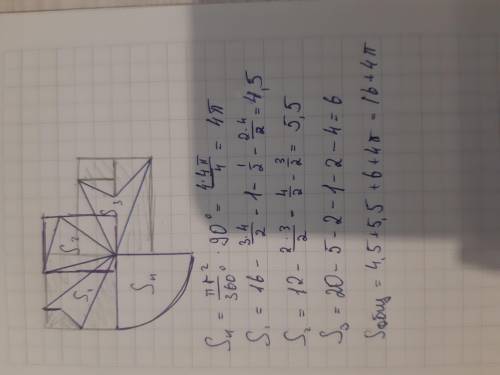 S₁
S₂
S₃
S₄
S₄ = πr²/360° · 90° = 4·4π/4 = 4π
S₁ = 16 - 3·4/2 - 1 - 1/2 - 2·4/2 = 4,5
S₂ = 12 - 2·3/2 - 4/2 - 3/2 = 5,5
S₃ = 20 - 5 - 2 - 1 - 2 - 4 = 6
Sобщ = 4,5 + 5,5 + 6 + 4π = 16 + 4π